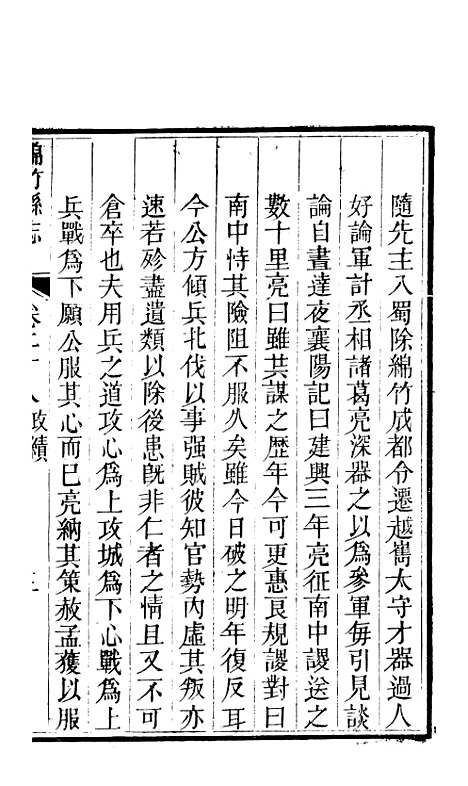 隨先主入蜀除綿竹成都令遷越嶲太守才器過人
好論軍計丞相諸葛亮深器之以爲參軍每引見談
論自晝達夜襄陽記曰建興三年亮征南中謖送之
數十里亮曰雖共謀之歷年今可更惠良規謖對曰
南中恃其險阻不服久矣雖今日破之明年復反耳
今公方傾兵北伐以事强賊彼知官勢內虛其叛亦
速若殄盡遺類以除後患旣非仁者之情且又不可
倉卒也夫用兵之道攻心爲上攻城爲下心戰爲上
兵戰爲下願公服其心而已亮納其策赦孟獲以服
綿竹縣志 卷二十八 政績 三